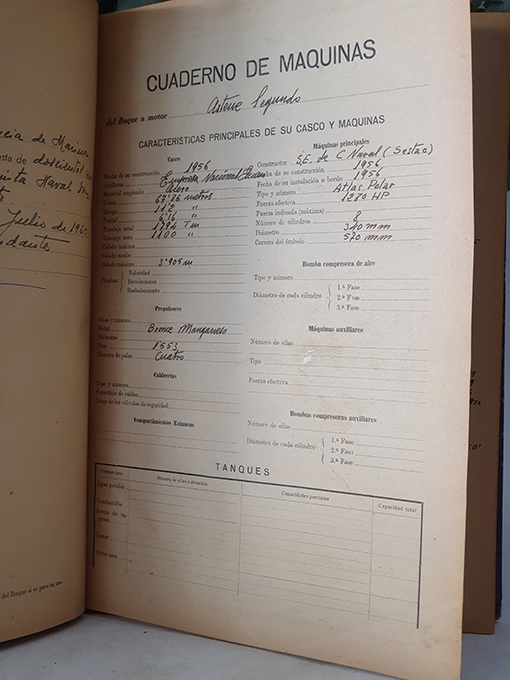 cia de Marina
sta de doscientas
uista Naval
Julio de 196
ndante
del Buque si es para su uso.
CUADERNO DE MAQUINAS
del Buque a motor Artene Segundo
CARACTERISTICAS PRINCIPALES DE SU CASCO Y MAQUINAS
Casco
Fecha de su construcción 1956
Empresa Nacional Elcano
Material empleado Acero
Eslora 67'26 metros
Manga "
Puntal 6'16 "
Desplazo total 1784 Tm
Tonelaje neto 1100 "
Calado
Calado medio
Calado máximo 3'905 m
Pruebas Velocidad
Revoluciones
Resbalamiento
Propulsores
Clase y número
Metal Bronce Manganeso
Diámetro
Paso 1553
Número de palas Cuatro
Calderetas
Tipo y número
Superficie de caldeo
Carga de las válvulas de seguridad
Compartimientos Estancos
Máquinas principales
Constructor S.E. de C. Naval (Sestao)
Fecha de su construcción 1956
Fecha de su instalación a bordo 1956
Tipo y número Atlas Polar
Fuerza efectiva 1280 HP
Fuerza indicada (máxima)
Número de cilindros 8
Diámetro 340 mm
Carrera del émbolo 570 mm
Bomba compresora de aire
Tipo y número
Diámetro de cada cilindro 1.ª Fase
2.ª Fase
3.ª Fase
Máquinas auxiliares
Número de ellas
Tipo
Fuerza efectiva
Bombas compresoras auxiliares
Número de ellas
Diámetro de cada cilindro 1.ª Fase
2.ª Fase
3.ª Fase
TANQUES
Tanques para
Número de ellos y situación
Capacidades parciales
Capacidad total
Agua potable
Combustible
Aceite de en grase
Lastre